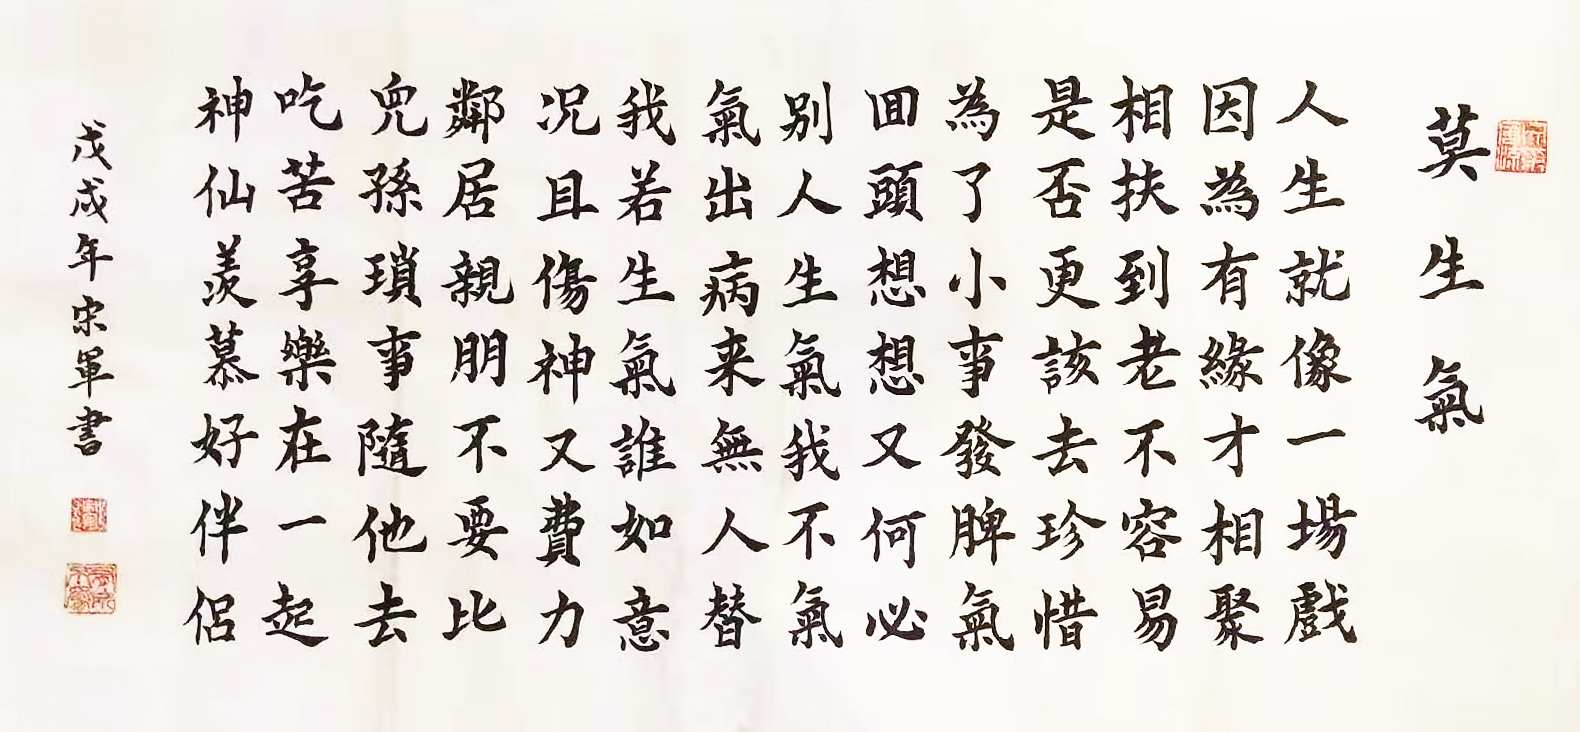 莫生氣
人生就像一場戲
因為有緣才相聚
相扶到老不容易
是否更該去珍惜
為了小事發脾氣
回頭想想又何必
別人生氣我不氣
氣出病来無人替
我若生氣誰如意
况且傷神又費力
鄰居親朋不要比
兒孫瑣事隨他去
吃苦享樂在一起
神仙羨慕好伴侶
戊戌年宋軍書